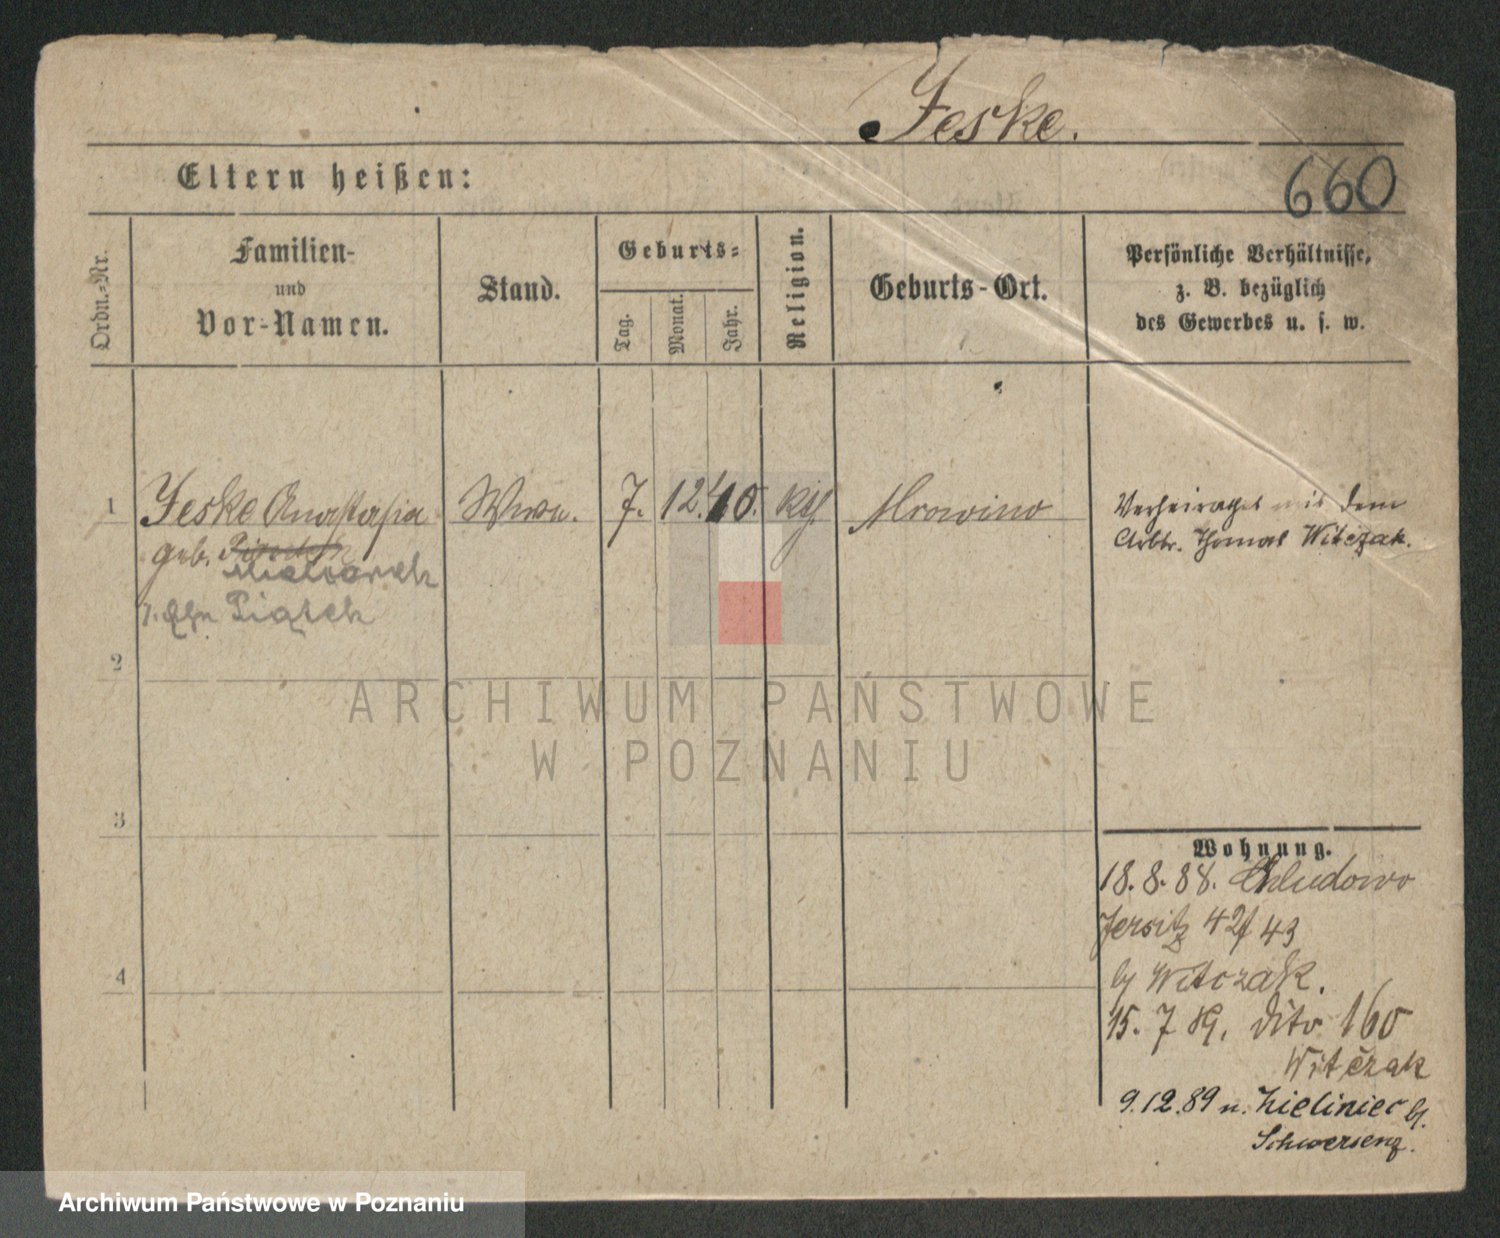 Jeske.
Eltern heißen:
660
Ordn.-Nr.
Familien-
und
Vor-Namen.
Stand.
Geburts-
Tag.
Monat.
Jahr.
Religion.
Geburts-Ort.
Persönliche Verhältnisse,
z. B. bezüglich
des Gewerbes u. s. w.
1 Jeske Anastasia Wwe. 7. 12. 40. kth. Mrowino
geb.
Piątek
Verheirathet mit dem
Arbtr. Thomas Witczak.
2
3
4
Wohnung.
18. 8. 88. Chludowo
Jersitz 42/43
by Witczak.
15. 7 89. dito 160
Witczak
9.12.89 n. Zieliniec b.
Schwersenz.
ARCHIWUM PAŃSTWOWE
W POZNANIU
Archiwum Państwowe w Poznaniu